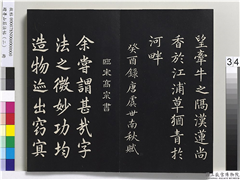 望牽牛之隔漢蓮尚
香於江浦草猶青於
河畔
癸酉錄唐虞世南秋賦
臨宋高宗書
余嘗謂甚哉字
法之微妙功均
造物迹出窈冥